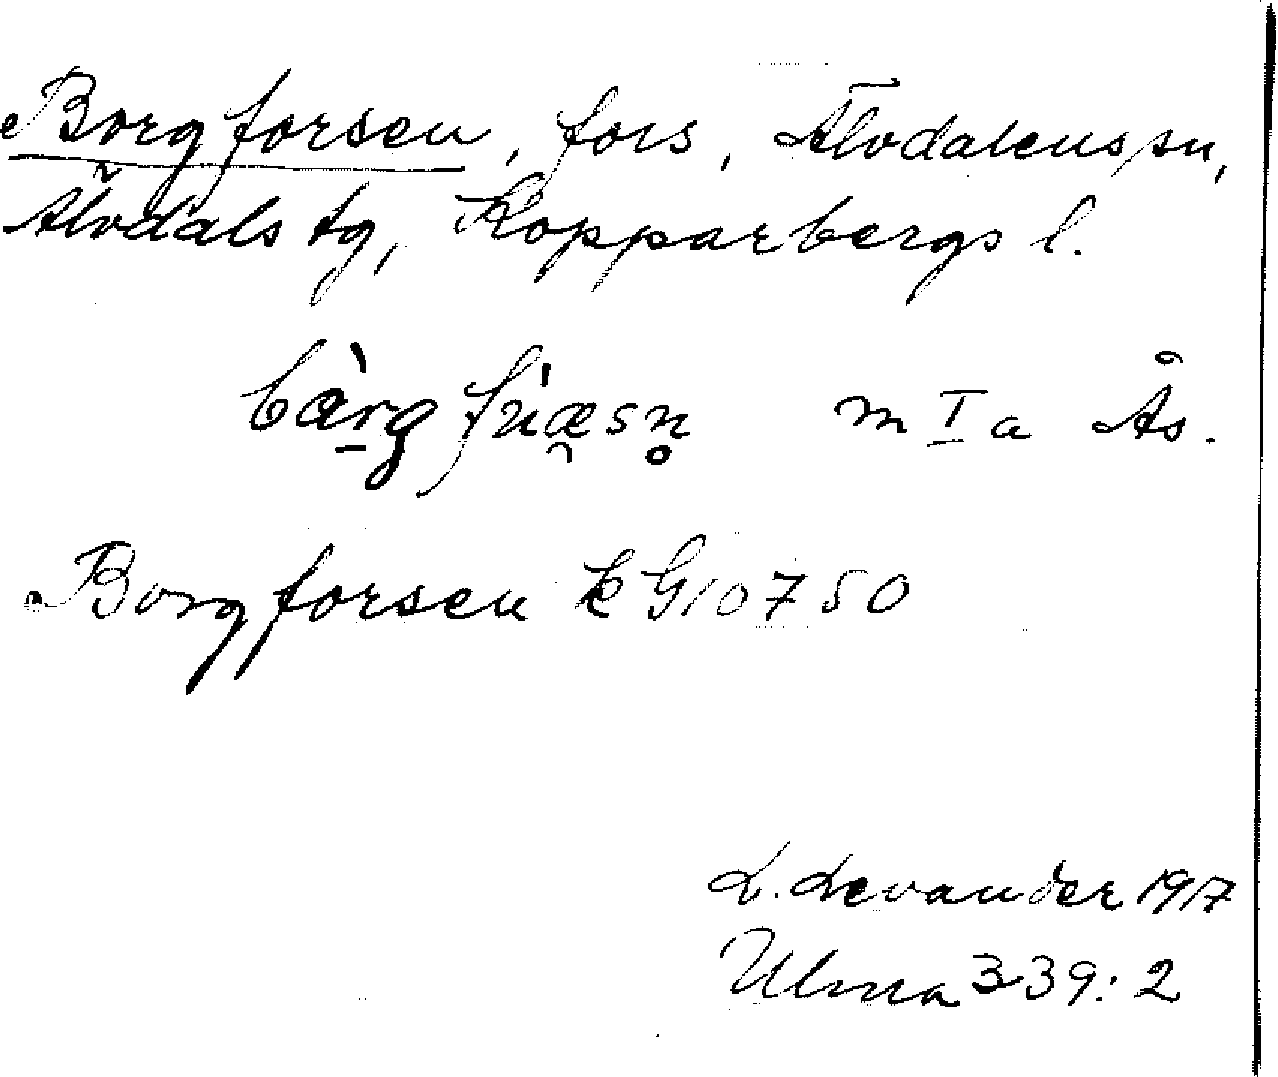 Borgforsen, fors, Älvdalens sn,
Älvdals tg, Kopparbergs l.
bàrgfúæsn̥ m I a Ås.
Borgforsen k G10750
L. Levander 1917
Ulma 339:2